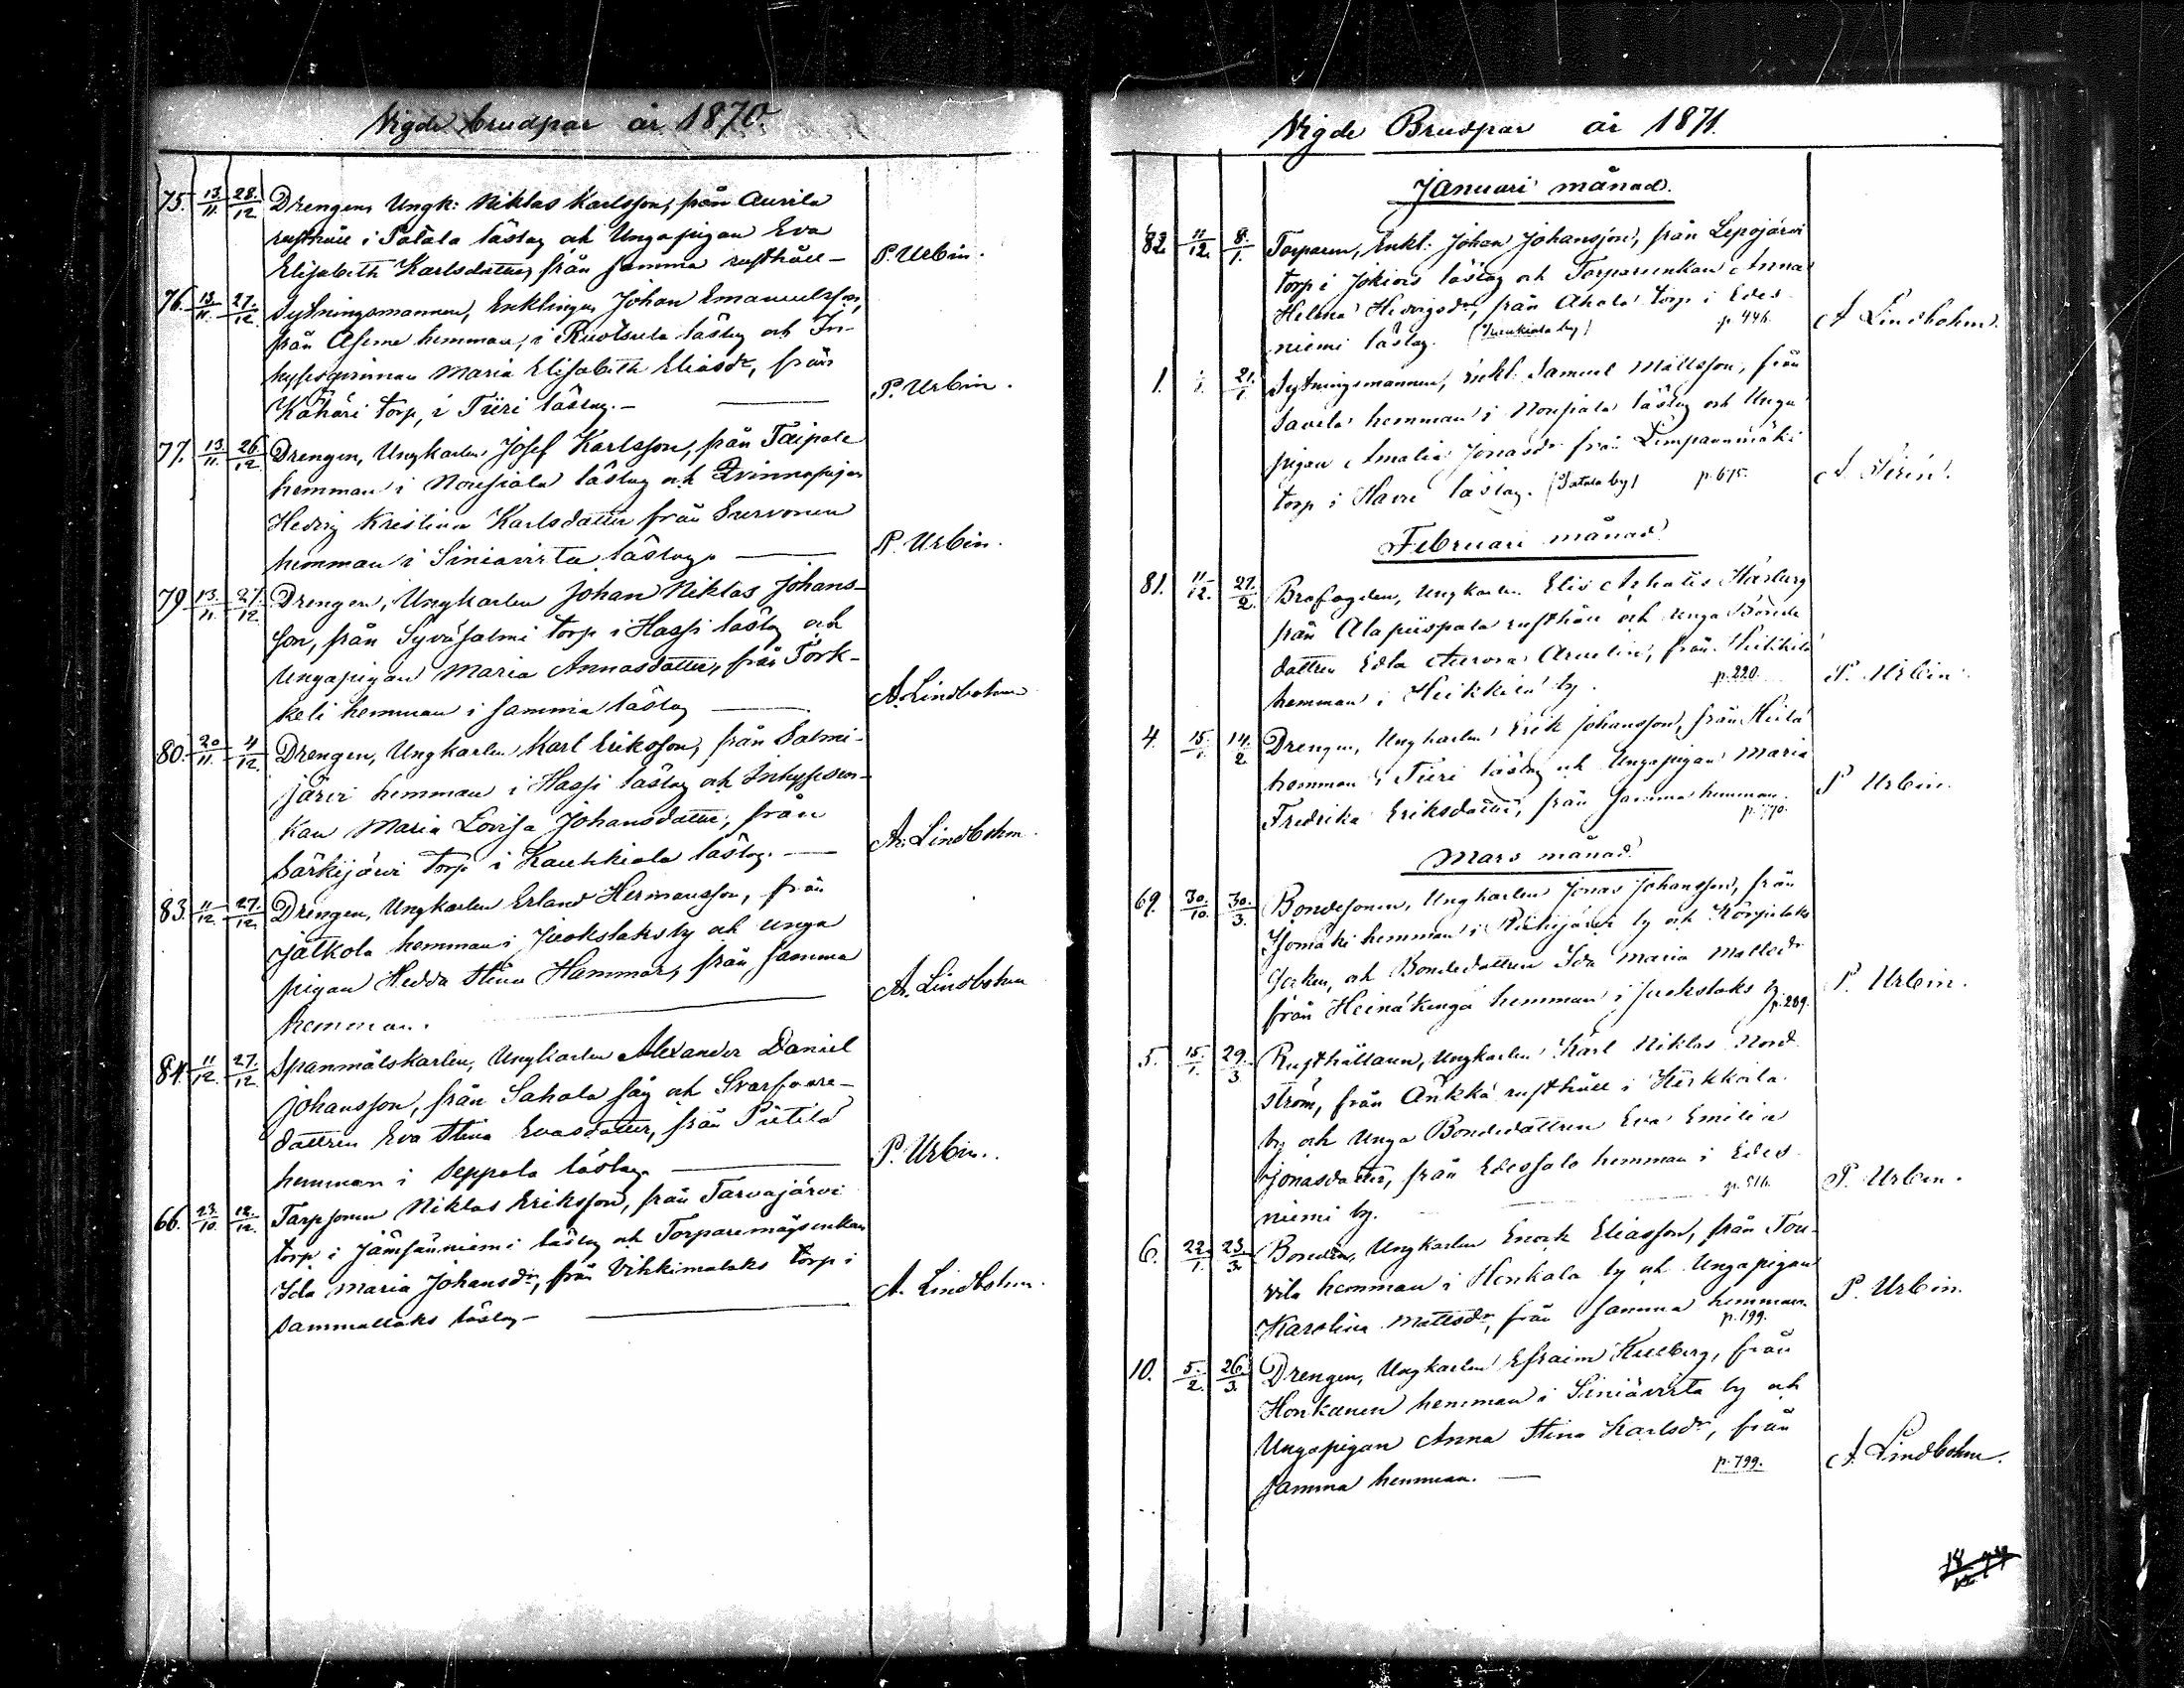 Vigde brudpar år 1870.
75. 13/11. 28./12 Drengen, Ungk: Niklas Karlsson, från Aurila
rusthåll i Patala låslag och Ungapigan Eva
Elisabeth Karlsdotter, från samma rusthåll - P. Urbin.
76. 13./11. 27./12. Sytningsmannen, Enklingen Johan Emanuelsson,
från hemman, i Ruotsula låslag och In-
hysesqvinnan Maria Elisabeth Eliasdr, från
Kähäri torp, i Tiiri låslag. - P. Urbin.
77. 13/11. 26./12 Drengen, Ungkarlen Josef Karlsson, från Taipale
hemman i Nousiala låslag och Qvinnopigan
Hedvig Kristina Karlsdotter från Survonen
hemman i Siniavirta låslag. P. Urbin.
79 13./11. 27./12 Drengen, Ungkarlen Johan Niklas Johans-
son, från Syväsalmi torp i Hassi låslag och
Ungapigan Maria Annasdotter, från Törk-
keli hemman i samma låslag A. Lindbohm
80. 20/11. 4/12. Drengen, Ungkarlen Karl Eriksson, från Salmi-
järvi hemman i Hassi låslag och Inhysesen-
kan Maria Lovisa Johansdotter, från
Särkijärvi torp i Kauhkiala låslag. A. Lindbohm.
83. 11/12 27./12. Drengen, Ungkarlen Erland Hermansson, från
Jätkola hemman i Juokslaks by och unga
pigan Hedda Stina Hammar, från samma
hemman. A. Lindbohm
84. 11/12. 27./12 Spanmålskarlen, Ungkarlen Alexander Daniel
Johansson, från Sahala såg och
dottren Eva Stina Evasdotter, från Pietilä
hemman i Seppola låslag. P. Urbin.
66. 23./10. 12./12. Torpsonen Niklas Eriksson, från Tarvajärvi
torp i Jämsänniemi låslag och Torparemågsenkan
Ida Maria Johansdr, från Vihkimalaks torp i
Sammallaks låslag - A. Lindbohm.
Vigde Brudpar år 1871.
Januari månad.
82. 11/12. 8./1. Torparen, Enkl: Johan Johansson, från Lepojärvi
torp i Jokiois låslag och Torpareenkan Anna
Helena Hedvigsdr, från Ahola torp i Edes
niemi låslag. p 446. A Lindbohm.
1. 21./1. Sytningsmannen, Enkl: Samuel Mattsson, från
Savela hemman i Nousiala låslag och Unga
pigan Amalia Jonasdr från Limpaanmäki
torp i Havre låslag. (Patala by) p. 675.
Februari månad.
81. 11/12. 27./2. Brofogden, Ungkarlen Elis
från Alapiispala rusthåll och Unga Bonde
dottren Edla Aurora från Heikkilä
hemman i Heikkilä by. p. 220. P. Urbin.
4. 15./1. 14./2. Drengen, Ungkarlen Erik Johansson, från Heilä
hemman i Tiiri låslag och Ungapigan Maria
Fredrika Eriksdotter, från samma hemman. P Urbin.
Mars månad.
69. 30./10. 30./3. Bondesonen, Ungkarlen Jonas Johansson, från
Isomäki hemman i by och Korpilaks
socken, och Bondedottren Ida Maria Mattsdr
från Heinäkenga hemman i Juokslaks by. p. 289. P. Urbin.
5. 15./1. 29./3 Rusthållaren, Ungkarlen Karl Niklas Nord
ström, från Ankka rusthåll i Heikkola
by och Unga Bondedottren Eva Emilia
Jonasdotter, från Edessalo hemman i Edes-
niemi by. P. Urbin.
6. 22./1. 23./3. Bonden, Ungkarlen Enock Eliasson, från Tou-
vila hemman i Henkala by och Ungapigan
Karolina Mattsdr, från samma hemman. p. 199. P. Urbin.
10. 5./2. 26./3. Drengen, Ungkarlen Efraim Kullberg, från
Honkanen hemman i Siniävirta by och
Ungapigan Anna Stina Karlsdr, från
samma hemman. p. 799. A. Lindbohm.